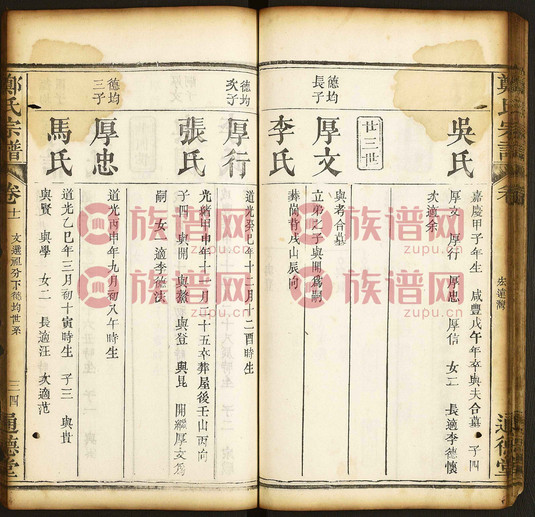 吳氏
嘉慶甲子年生 咸豐戊午年卒與夫合墓 子四
厚文 厚行 厚忠 厚信 女二 長適李德懷
次適余
廿三世
德均
長子
厚文
李氏
與考合墓
立弟之子與開爲嗣
葬蘭背戌山辰向
德均
次子
厚行
張氏
道光癸巳年十二月十二酉時生
光緒甲申年十一月二十五卒葬屋後壬山丙向
子四 與開與熬 與登 與晁 開繼厚文爲
嗣 女一適李德法
德均
三子
厚忠
馬氏
道光丙申年九月初八午時生
道光乙巳年三月初十寅時生 子三 與貴
與賢 與學 女二 長適汪 次適范
鄭氏宗譜
卷十一
文選派分下德均世系
三四
通德堂
族谱网
族谱网
族谱网
族谱网